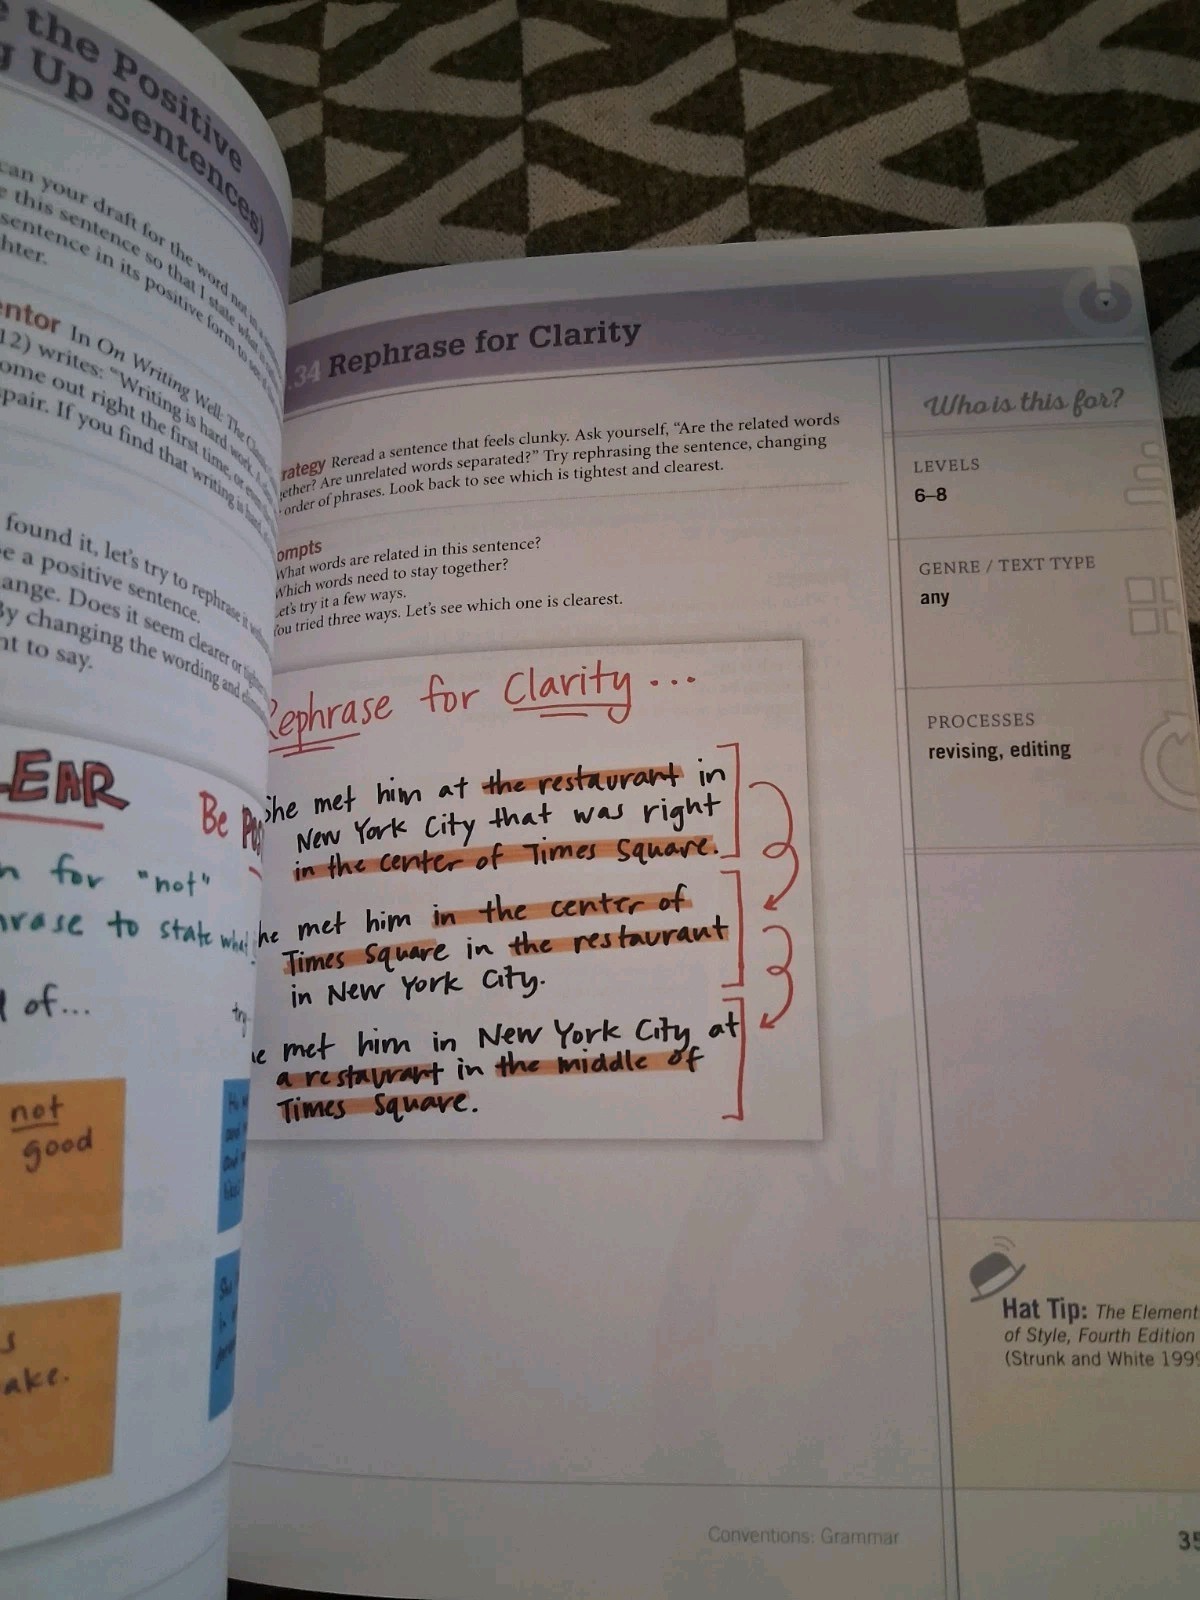 the Positive
Up Sentences)
can your draft for the word not
this sentence so that I state what
sentence in its positive form to see
In On Writing Well: The
12) writes: "Writing is hard work. A
ome out right the first time, or even
pair. If you find that writing is hard,
found it, let's try to rephrase it
e a positive sentence.
ange. Does it seem clearer or
By changing the wording and
nt to say.
EAR
Be
for "not"
hrase to state what
of...
try
not
good
ake.
.34 Rephrase for Clarity
rategy Reread a sentence that feels clunky. Ask yourself, “Are the related words
gether? Are unrelated words separated?” Try rephrasing the sentence, changing
order of phrases. Look back to see which is tightest and clearest.
ompts
What words are related in this sentence?
Which words need to stay together?
Let's try it a few ways.
You tried three ways. Let's see which one is clearest.
Rephrase for Clarity...
She met him at the restaurant in
New York City that was right
in the center of Times Square.
he met him in the center of
Times Square in the restaurant
in New York City.
e met him in New York City at
a restaurant in the middle of
Times Square.
Who is this for?
LEVELS
6–8
GENRE / TEXT TYPE
any
PROCESSES
revising, editing
Hat Tip: The Element
of Style, Fourth Edition
(Strunk and White 1999
Conventions: Grammar
35